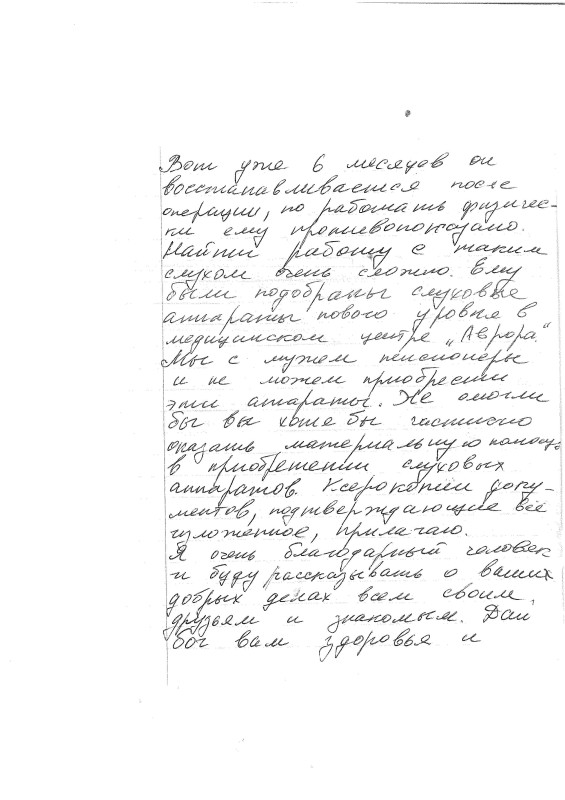 Вот уже 6 месяцев он
восстанавливается после
операции, но работать физичес-
ки ему противопоказано.
Найти работу с таким
слухом очень сложно. Ему
были подобраны слуховые
аппараты нового уровня в
медицинском центре „Аврора“
Мы с мужем пенсионеры
и не можем приобрести
эти аппараты. Не смогли
бы вы хотя бы частично
оказать материальную помощь
в приобретении слуховых
аппаратов. Ксерокопии доку-
ментов, подтверждающие всё
изложенное, прилагаю.
Я очень благодарный человек
и буду рассказывать о ваших
добрых делах всем своим
друзьям и знакомым. Дай
бог вам здоровья и